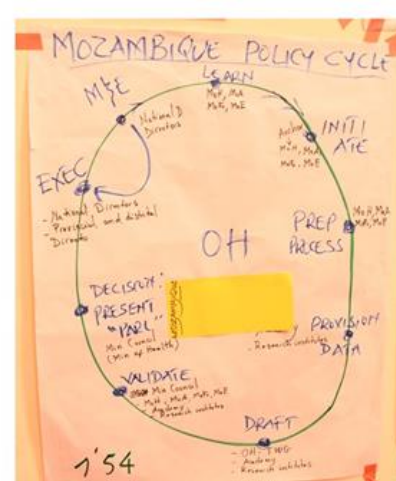 MOZAMBIQUE POLICY CYCLE
LEARN
MoH, MoA,
MoE
M&E
National D
Directors
INITI
ATE
MoH, MoA,
MoE
EXEC
- National Directors
- Provincial and distrital
Directo
PREP
PROCESS
MoH, MoA
MoE
OH
DECISION:
PRESENT
"PARL"
Min Counsil
(Min of Health)
PROVISION
DATA
- Research institutes
VALIDATE
Min Counsil
MoH, MoA, MoE
- Academy
- Research institutes
DRAFT
- OH-TWG
- Academy
- Research institutes
1'54